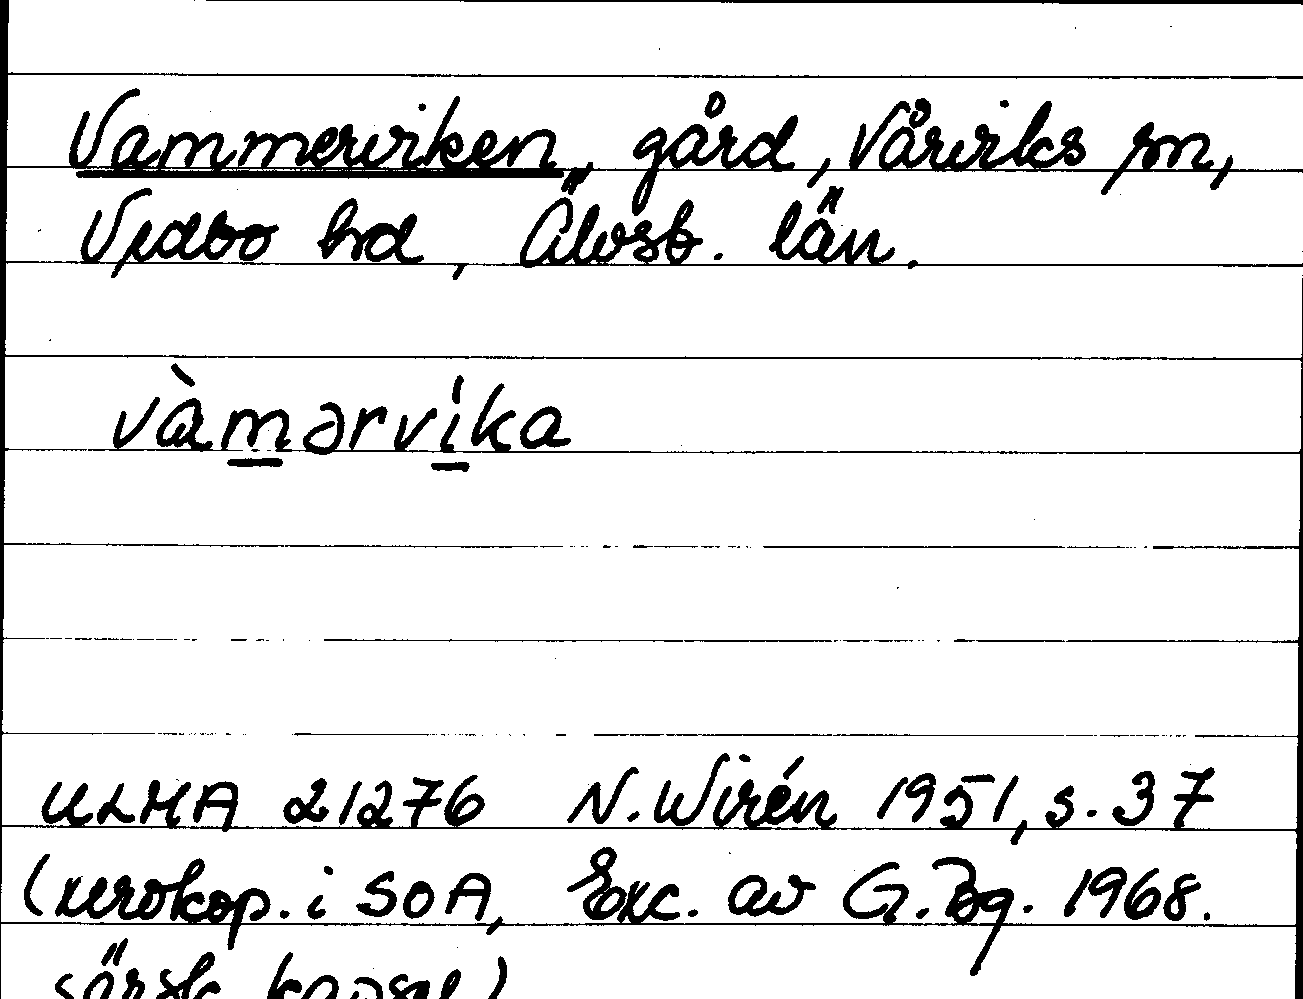 Vammerviken, gård, Vårviks sn,
Vedbo hd, Älvsb. län.
vàmərvika
ULMA 21276 N. Wirén 1951, s. 37
(xerokop. i SOA, Exc. av G. Bg. 1968.
särsk. kapsel)